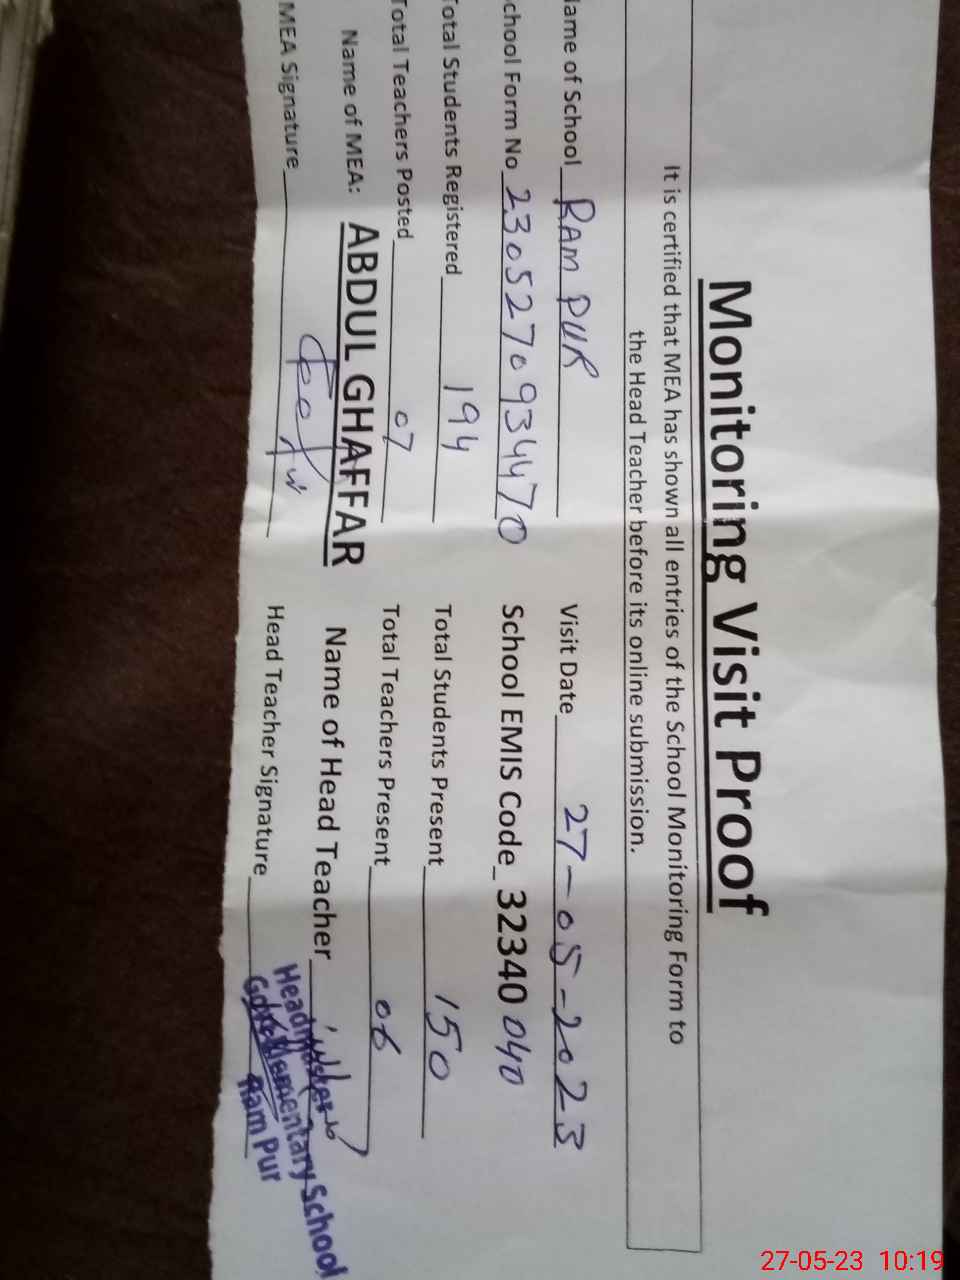 Monitoring Visit Proof
It is certified that MEA has shown all entries of the School Monitoring Form to
the Head Teacher before its online submission.
ame of School RAM PUR Visit Date 27-05-2023
chool Form No 2305270934470 School EMIS Code 32340 040
Total Students Registered 194 Total Students Present 150
Total Teachers Posted 07 Total Teachers Present 06
Name of MEA: ABDUL GHAFFAR Name of Head Teacher
MEA Signature Head Teacher Signature
Headmaster
Govt. Elementary School
Ram Pur
27-05-23 10:19